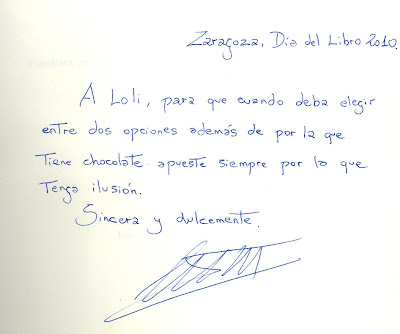 Zaragoza, Dia del Libro 2010.
A Loli, para que cuando deba elegir
entre dos opciones además de por la que
tiene chocolate apueste siempre por la que
tenga ilusión.
Sincera y dulcemente.